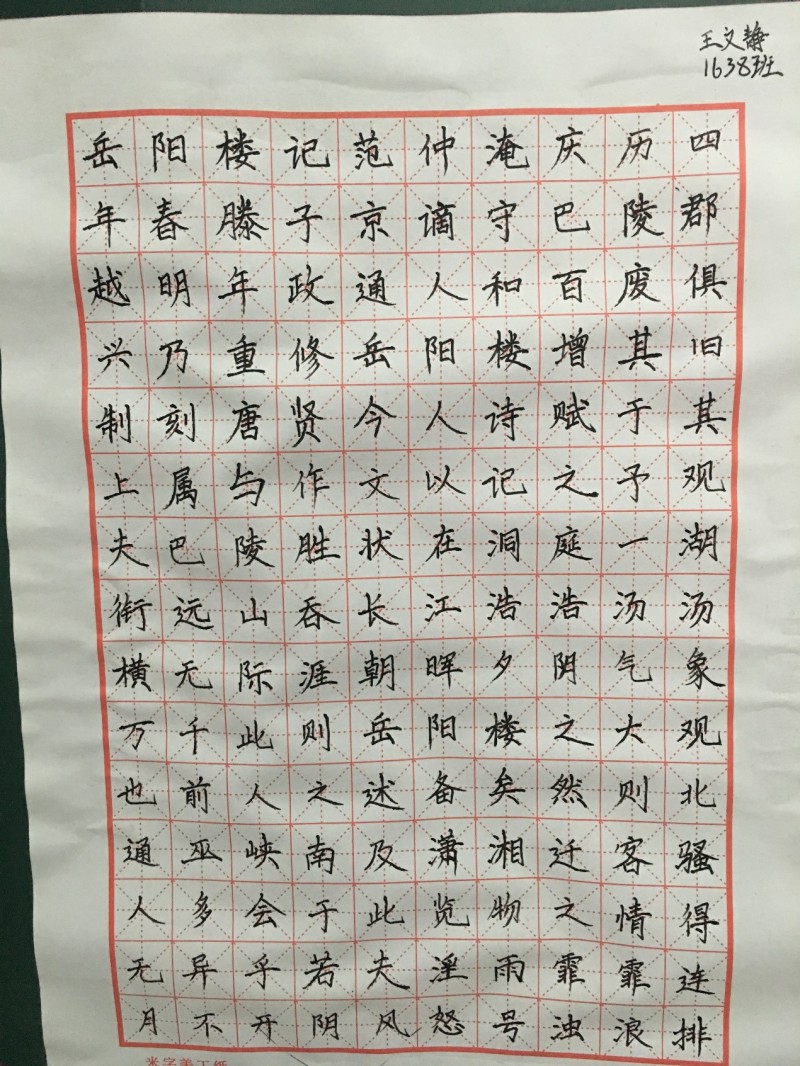 王文静
1638班
岳阳楼记范仲淹庆历四
年春滕子京谪守巴陵郡
越明年政通人和百废俱
兴乃重修岳阳楼增其旧
制刻唐贤今人诗赋于其
上属与作文以记之予观
夫巴陵胜状在洞庭一湖
衔远山吞长江浩浩汤汤
横无际涯朝晖夕阴气象
万千此则岳阳楼之大观
也前人之述备矣然则北
通巫峡南及潇湘迁客骚
人多会于此览物之情得
无异乎若夫淫雨霏霏连
月不开阴风怒号浊浪排